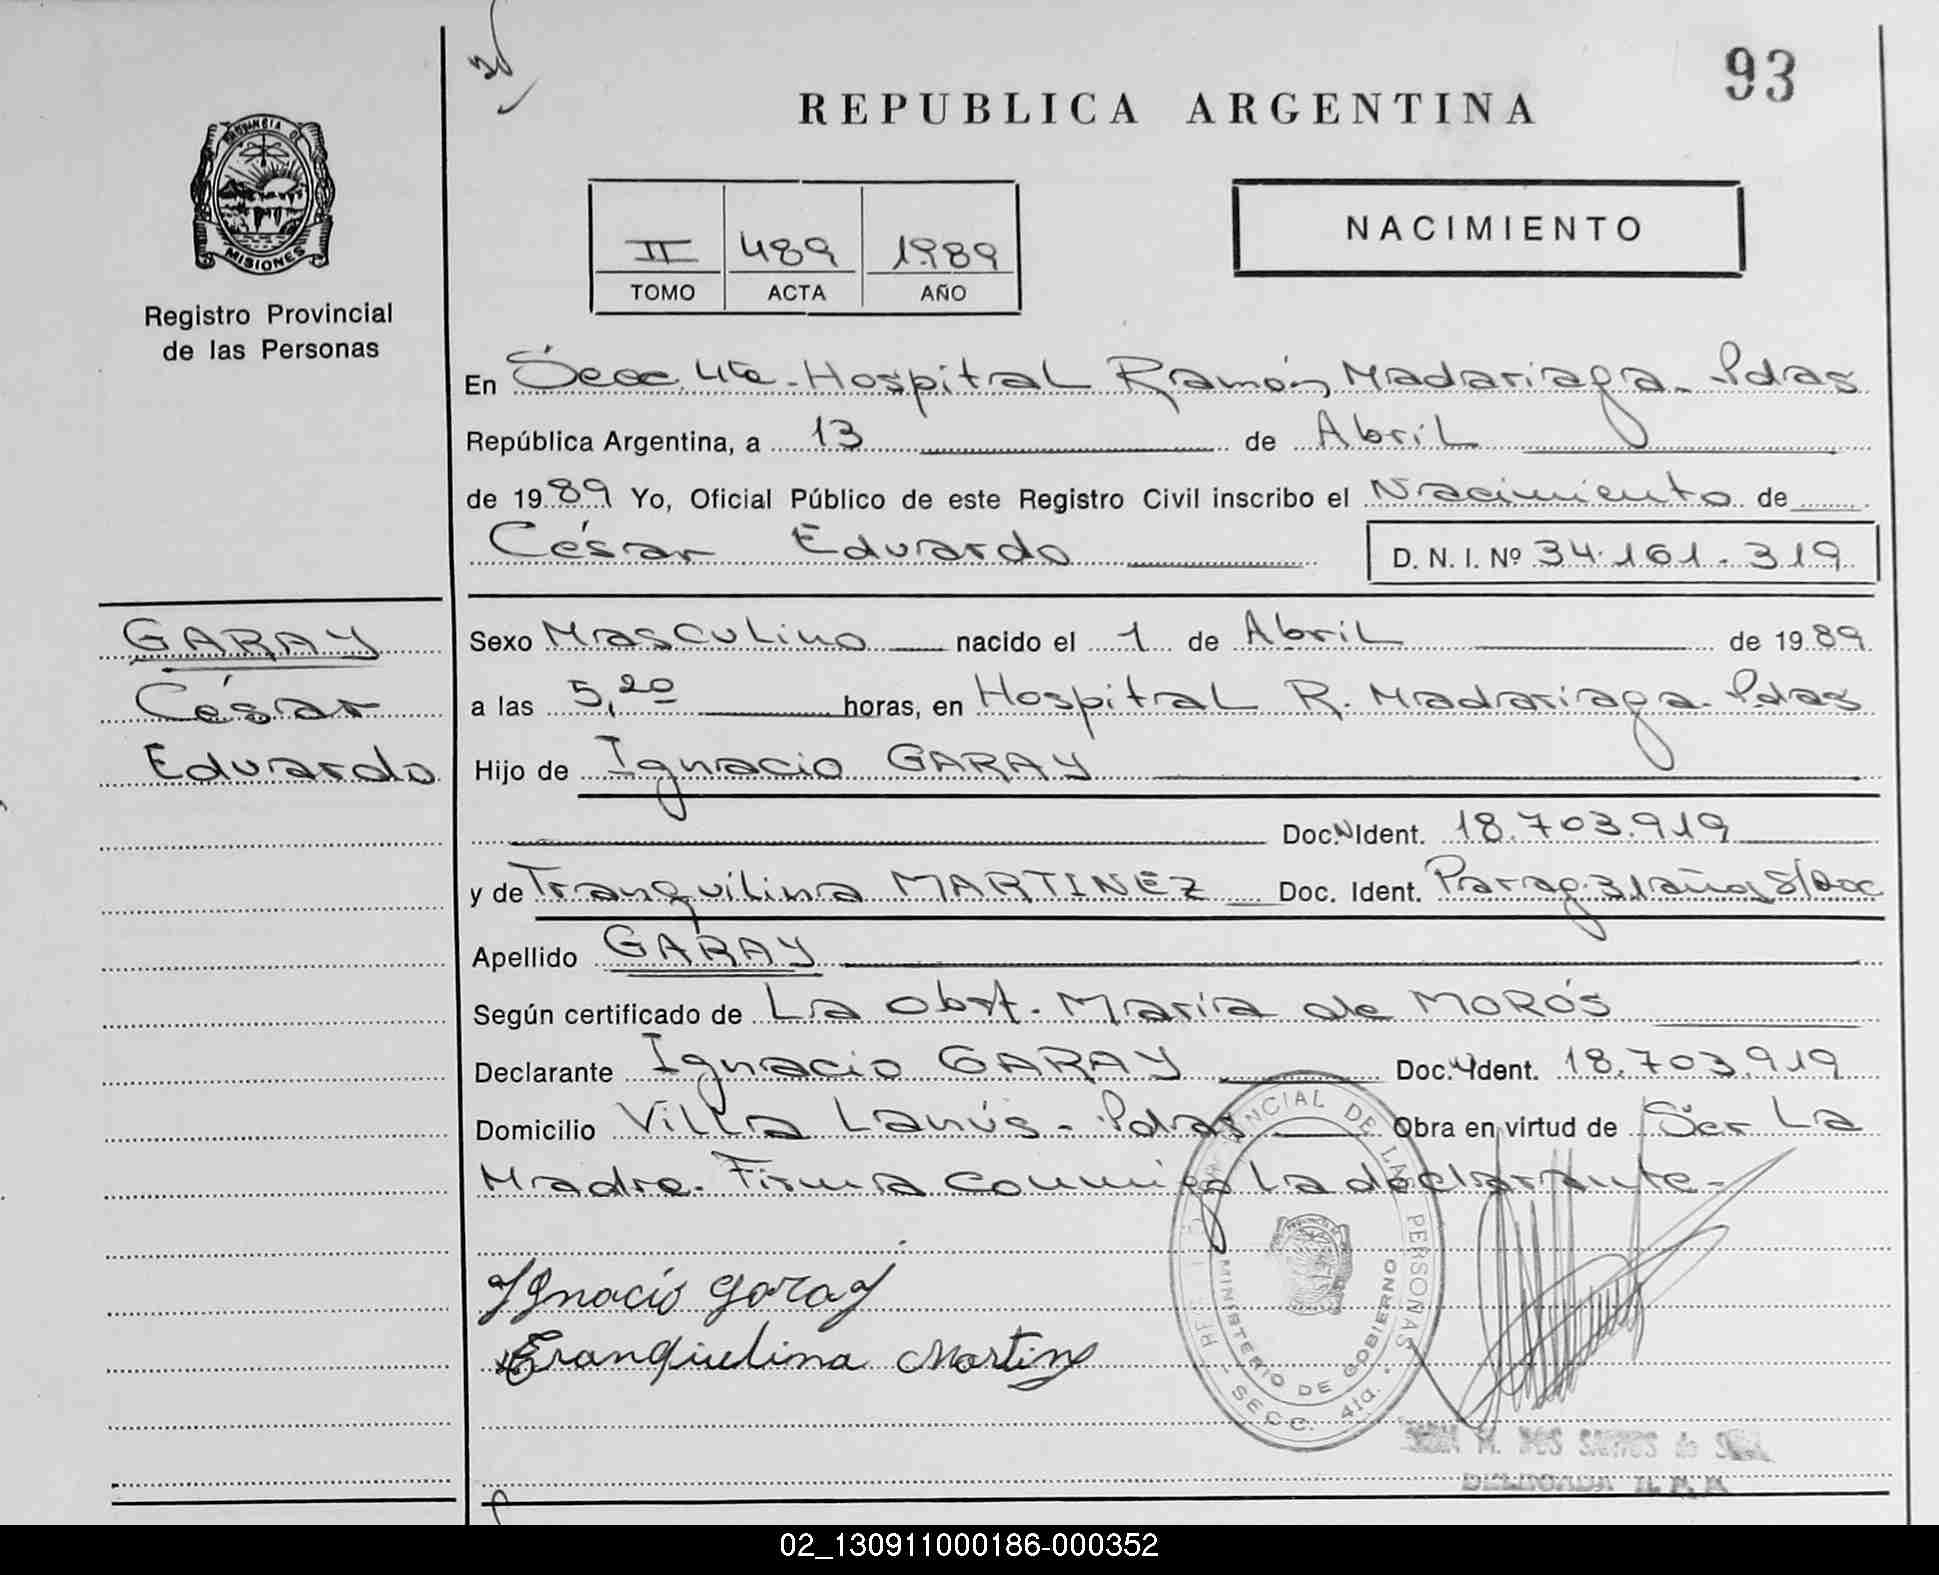 93
REPUBLICA ARGENTINA
PROVINCIA DE
MISIONES
Registro Provincial
de las Personas
NACIMIENTO
II 489 1989
TOMO ACTA AÑO
En Secc 4ta - Hospital Ramón Madariaga - Pdas
República Argentina, a 13 de Abril
de 1989 Yo, Oficial Público de este Registro Civil inscribo el Nacimiento de
César Eduardo D. N. I. Nº 34.161.319
GARAY
César
Eduardo
Sexo Masculino nacido el 1 de Abril de 1989
a las 5,20 horas, en Hospital R. Madariaga - Pdas
Hijo de Ignacio GARAY
Doc. Ident. 18.703.919
y de Tranquilina MARTINEZ Doc. Ident. Parag. 31 años S/Doc
Apellido GARAY
Según certificado de La Obst. María de MORÓS
Declarante Ignacio GARAY Doc. Ident. 18.703.919
Domicilio Villa Lanús - Pdas Obra en virtud de Ser La
Madre. Firma conmigo La declarante -
Ignacio Garay
Tranquielina Martinez
PROVINCIAL DE LAS PERSONAS
MINISTERIO DE GOBIERNO
SECC. 4ta.
M. DOS SANTOS de
DELEGADA
02_130911000186-000352